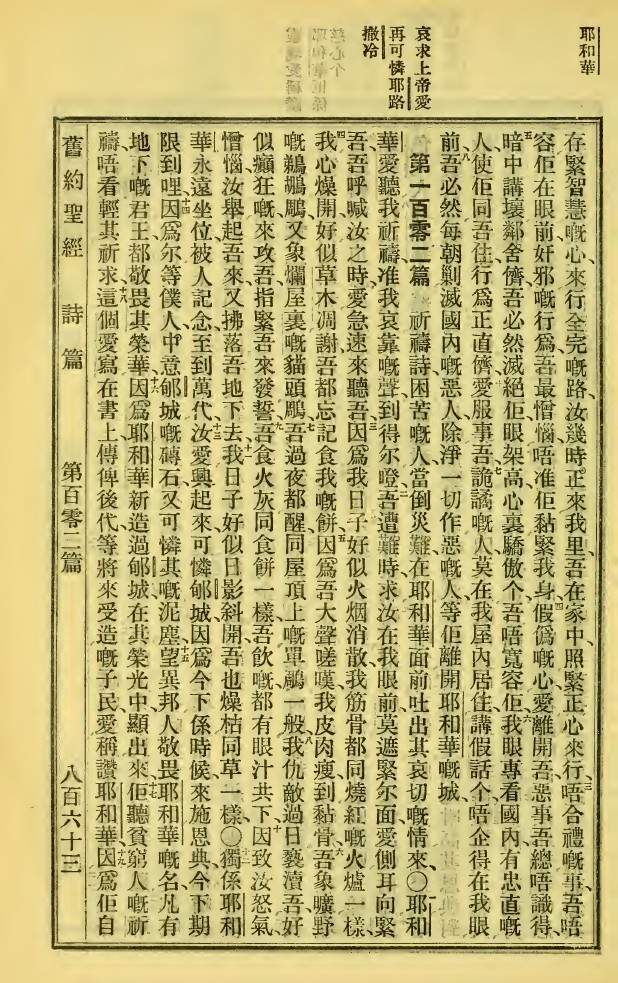 耶和華
哀求上帝愛
再可憐耶路
撒冷
存緊智慧嘅心來行全完嘅路、汝幾時正來我里、吾在家中照緊正心來行、三唔合禮嘅事、吾唔
容佢在眼前、奸邪嘅行爲、吾最憎惱、唔准佢黏緊我身、四假僞嘅心愛離開吾、惡事吾總唔識得、
五暗中講壞鄰舍儕、吾必然滅絕佢、眼架高心裏驕傲个、吾唔寬容佢、六我眼專看國內有忠直嘅
人、使佢同吾住、行爲正直儕愛服事吾、七詭譎嘅人、莫在我屋內居住、講假話个、唔企得在我眼
前、八吾必然每朝剿滅國內嘅惡人、除淨一切作惡嘅人等佢離開耶和華嘅城、
第一百零二篇 祈禱詩困苦嘅人、當倒災難、在耶和華面前、吐出其哀切嘅情來、〇一耶和
華愛聽我祈禱、准我哀靠嘅聲、到得尔嶝、二吾遭難時求汝在我眼前、莫遮緊尔面、愛側耳向緊
吾、吾呼喊汝之時、愛急速來聽吾、三因爲我日子好似火烟消散、我筋骨都同燒紅嘅火爐一樣、
四我心燥開、好似草木凋謝、吾都忘記食我嘅餅、五因爲吾大聲嗟嘆、我皮肉瘦到黏骨、六吾象曠野
嘅鵜鶘鵰、又象爛屋裏嘅貓頭鵰、七吾過夜都醒、同屋頂上嘅單鵰一般、八我仇敵過日褻瀆吾、好
似癲狂嘅來攻吾、指緊吾來發誓、九吾食火灰同食餅一樣、吾飲嘅都有眼汁共下、十因致汝怒氣
憎惱、汝舉起吾來、又拂落吾地下去、十一我日子好似日影斜開、吾也燥枯同草一樣、〇十二獨係耶和
華永遠坐位、被人記念至到萬代、十三汝愛興起來可憐郇城、因爲今下係時候來施恩典、今下期
限到哩、十四因爲尔等僕人中意郇城嘅磚石、又可憐其嘅泥塵、十五望異邦人敬畏耶和華嘅名、凡有
地下嘅君王、都敬畏其榮華、十六因爲耶和華新造過郇城、在其榮光中顯出來、十七佢聽貧窮人嘅祈
禱、唔看輕其祈求、十八這個愛寫在書上、傳俾後代、等將來受造嘅子民、愛稱讚耶和華、十九因爲佢自
舊約聖經 詩篇 第百零二篇 八百六十三